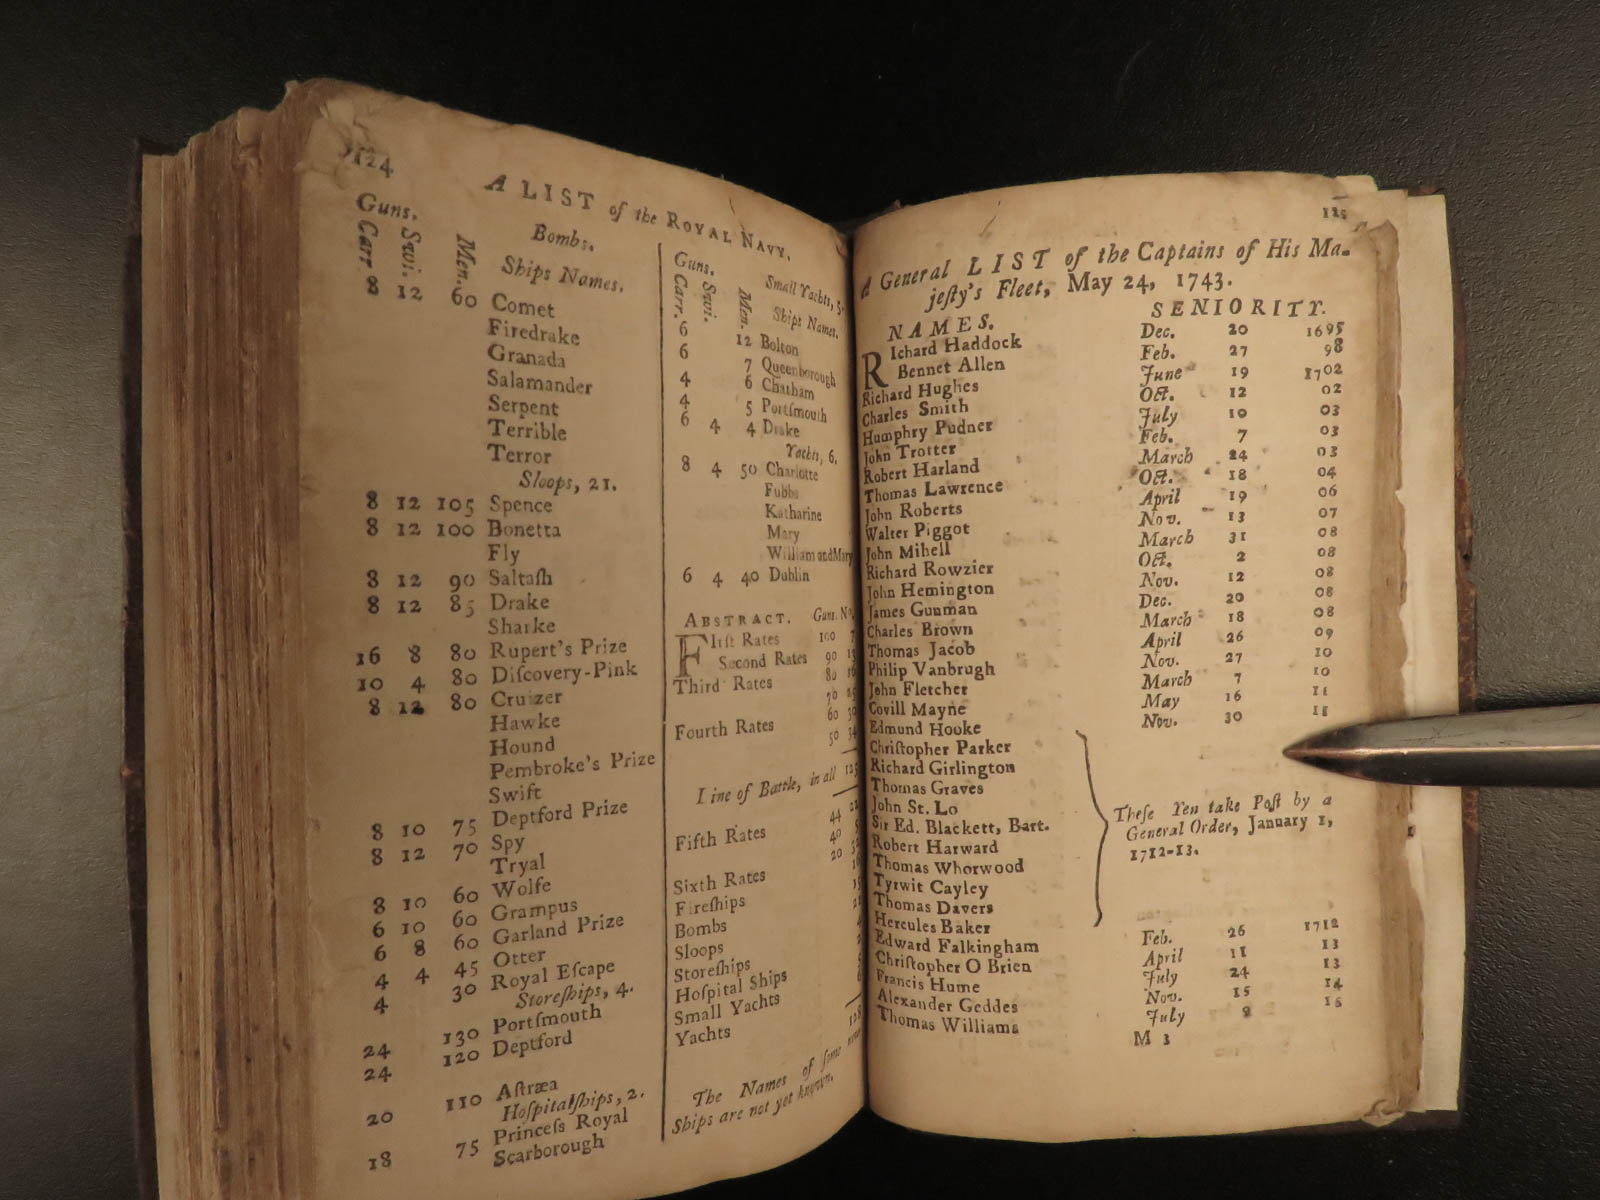 124
A LIST of the ROYAL NAVY.
Guns.
Carr
Swi.
Men.
Bombs.
Ships Names.
8 12 60 Comet
Firedrake
Granada
Salamander
Serpent
Terrible
Terror
Sloops, 21.
8 12 105 Spence
8 12 100 Bonetta
Fly
8 12 90 Saltaſh
8 12 85 Drake
Sharke
16 8 80 Rupert's Prize
10 4 80 Diſcovery-Pink
8 12 80 Cruizer
Hawke
Hound
Pembroke's Prize
Swift
8 10 75 Deptford Prize
8 12 70 Spy
Tryal
8 10 60 Wolfe
6 10 60 Grampus
6 8 60 Garland Prize
4 4 45 Otter
4 30 Royal Eſcape
Storeſhips, 4.
24 130 Portſmouth
24 120 Deptford
20 110 Aſtræa
Hoſpitalſhips, 2.
18 75 Princeſs Royal
Scarborough
Guns.
Carr.
Swi.
Men.
Small Yachts, 5.
Ships Names.
6 12 Bolton
6 7 Queenborough
4 6 Chatham
4 5 Portſmouth
6 4 4 Drake
Yachts, 6.
8 4 50 Charlotte
Fubbs
Katharine
Mary
William and Mary
6 4 40 Dublin
ABSTRACT. Guns. No.
FIrſt Rates 100 7
Second Rates 90
Third Rates 80
70
Fourth Rates 60
50
Line of Battle, in all
Fifth Rates 44
40
Sixth Rates 20
Fireſhips
Bombs
Sloops
Storeſhips
Hoſpital Ships
Small Yachts
Yachts
The Names of ſome
Ships are not yet known.
125
A General LIST of the Captains of His Ma-
jeſty's Fleet, May 24, 1743.
NAMES. SENIORITY.
RIchard Haddock Dec. 20 1695
Bennet Allen Feb. 27 98
Richard Hughes June 19 1702
Charles Smith Oct. 12 02
Humphry Pudner July 10 03
John Trotter Feb. 7 03
Robert Harland March 24 03
Thomas Lawrence Oct. 18 04
John Roberts April 19 06
Walter Piggot Nov. 13 07
John Mihell March 31 08
Richard Rowzier Oct. 2 08
John Hemington Nov. 12 08
James Gunman Dec. 20 08
Charles Brown March 18 08
Thomas Jacob April 26 09
Philip Vanbrugh Nov. 27 10
John Fletcher March 7 10
Covill Mayne May 16 11
Edmund Hooke Nov. 30 11
Chriſtopher Parker
Richard Girlington
Thomas Graves
John St. Lo
Sir Ed. Blackett, Bart.
Robert Harward
Thomas Whorwood
Tyrwit Cayley
Thomas Davers
Hercules Baker
Theſe Ten take Poſt by a
General Order, January 1,
1712-13.
Edward Falkingham Feb. 26 1712
Chriſtopher O Brien April 11 13
Francis Hume July 24 13
Alexander Geddes Nov. 15 14
Thomas Williams July 9
M 3